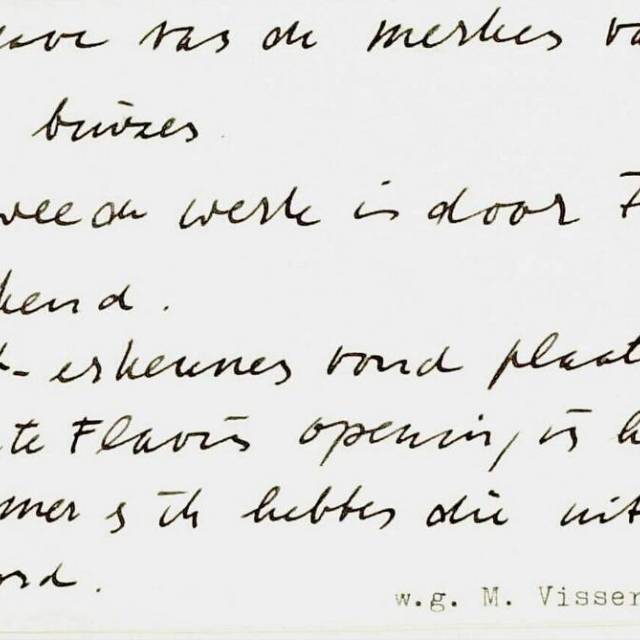 van de merken
buizen
weede werk is door F
kend.
erkennen vond plaat
te Flavin opening, in
mer & ik hebben die uit
ord.
w.g. M. Visser